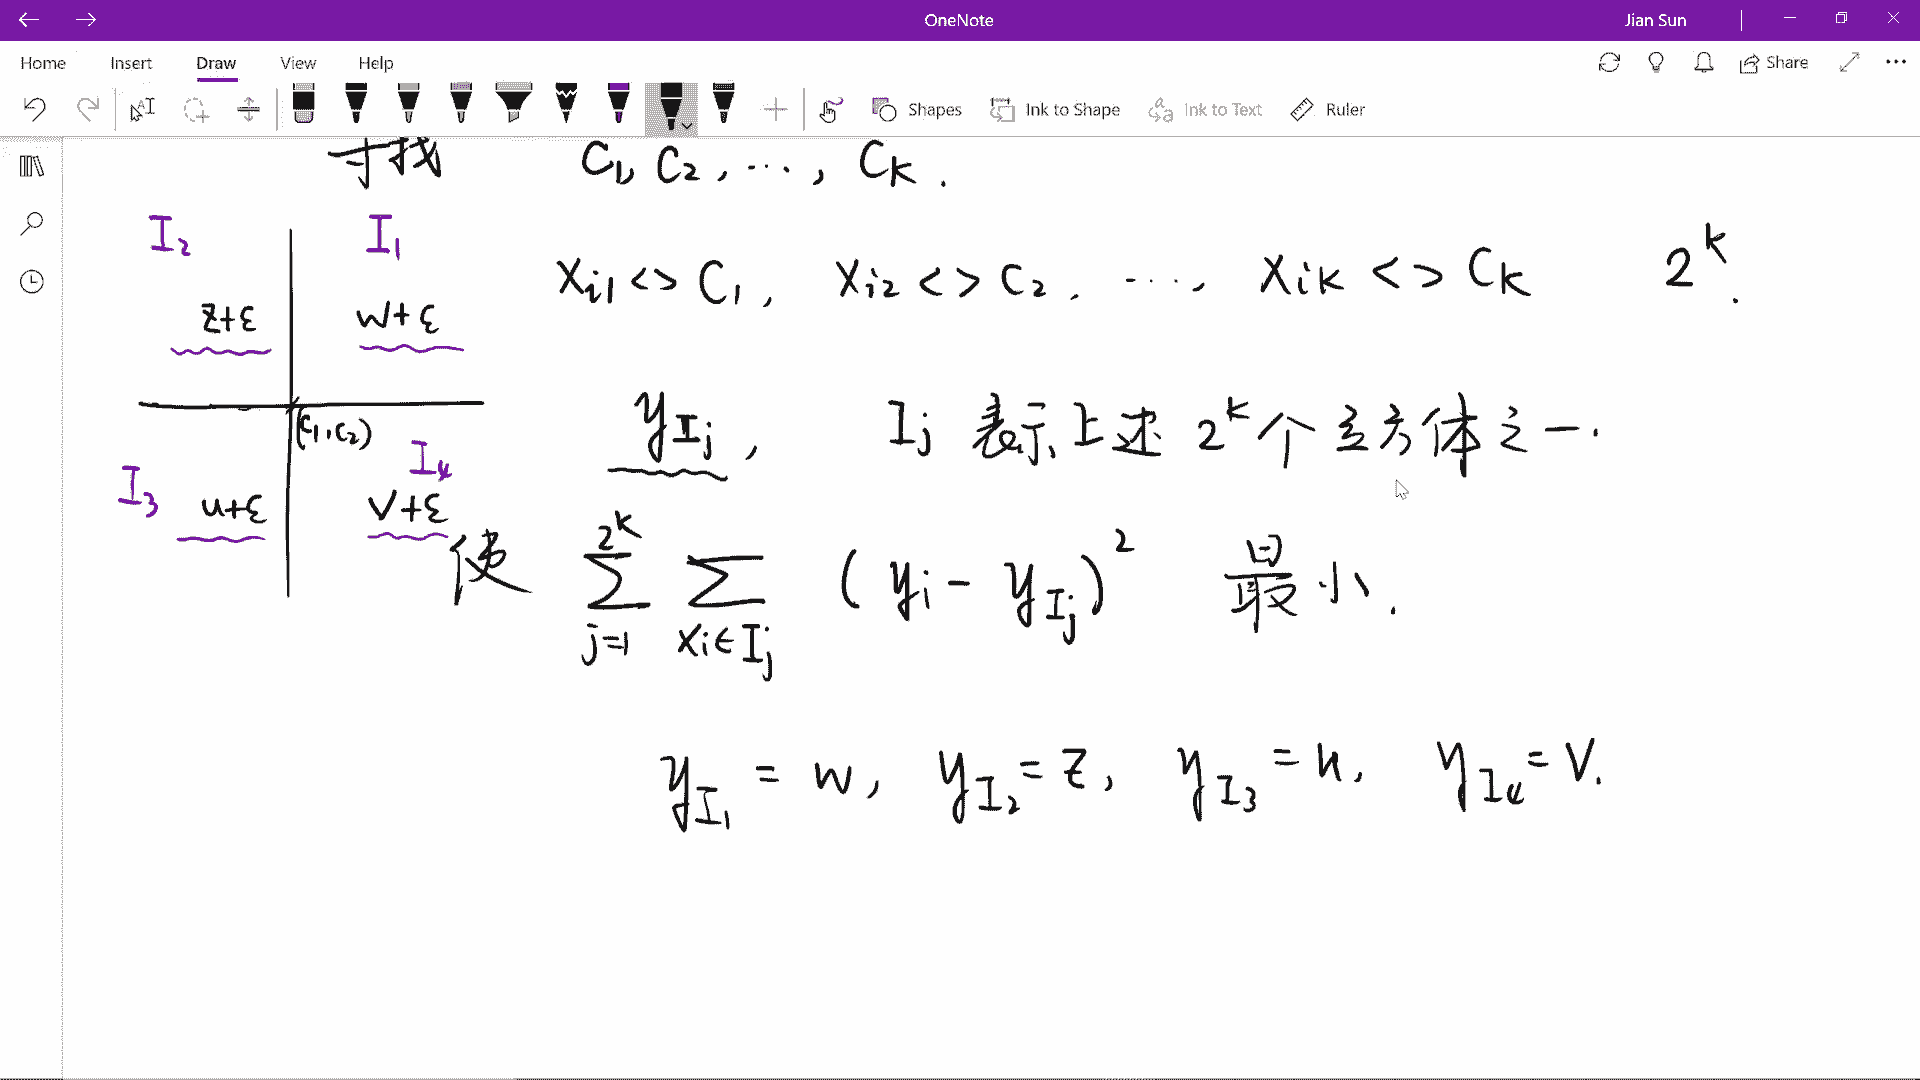 OneNote
Jian Sun
Home Insert Draw View Help
Share
Shapes Ink to Shape Ink to Text Ruler
寻找 C1, C2, ..., CK.
I2 I1
xi1 <> C1, xi2 <> C2, ..., xiK <> CK 2^K.
z+ε w+ε
(C1, C2)
yIj, Ij 表示上述 2^K 个立方体之一.
I3 I4
u+ε v+ε
使 ∑_{j=1}^{2^K} ∑_{xi∈Ij} (yi - yIj)^2 最小.
yI1 = w, yI2 = z, yI3 = u, yI4 = v.